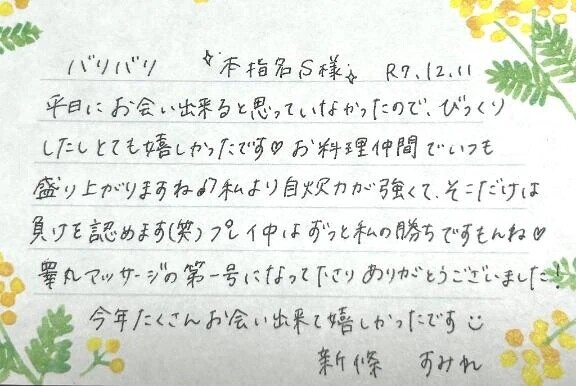 バリバリ ✧本指名S様✧ R7.12.11
平日にお会い出来ると思っていなかったので、びっくり
したしとても嬉しかったです♡ お料理仲間でいつも
盛り上がりますね♪私より自炊力が強くて、そこだけは
負けを認めます(笑)プレイ中はずっと私の勝ちですもんね♡
睾丸マッサージの第一号になって下さりありがとうございました!
今年たくさんお会い出来て嬉しかったです☺
新條 すみれ